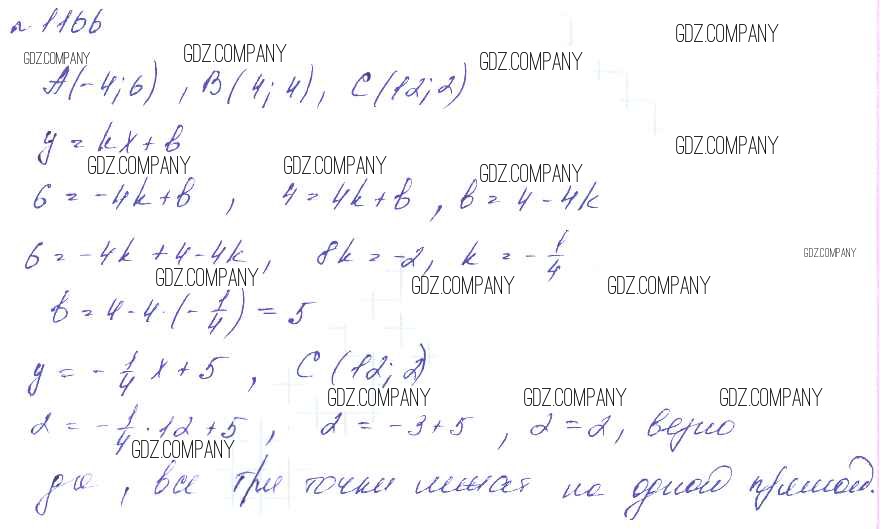 n 1166
GDZ.COMPANY GDZ.COMPANY GDZ.COMPANY GDZ.COMPANY
A(-4;6) , B(4;4), C(12;2)
y = kx + b
GDZ.COMPANY GDZ.COMPANY GDZ.COMPANY GDZ.COMPANY
6 = -4k+b , 4 = 4k+b , b = 4-4k
6 = -4k+4-4k, 8k = -2, k = -1/4
GDZ.COMPANY GDZ.COMPANY GDZ.COMPANY GDZ.COMPANY
b = 4-4·(-1/4) = 5
y = -1/4 x+5 , C(12;2)
GDZ.COMPANY GDZ.COMPANY GDZ.COMPANY
2 = -1/4·12+5 , 2 = -3+5 , 2=2, верно
GDZ.COMPANY
да, все три точки лежат на одной прямой.